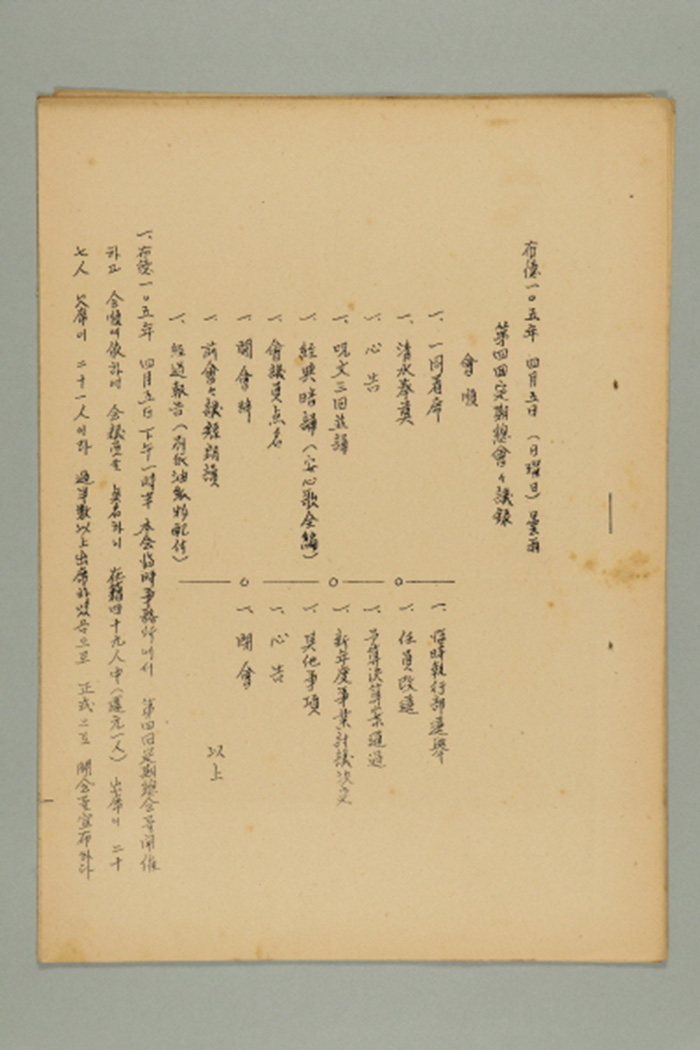 布德一〇五年 四月五日 (日曜日) 曇雨
第四回定期總會々議錄
會順
一、一同着席
一、清水奉奠
一、心告
一、呪文三回並誦
一、經典暗誦 (安心歌全編)
一、會議員点名
一、開會辞
一、前會々議錄朗讀
一、經過報告 (別紙油紙物配付)
一、臨時執行部選擧
一、任員改選
一、予算決算案通過
一、新年度事業討議決定
一、其他事項
一、心告
一、閉會
以上
一、布德一〇五年 四月五日 下午一時半 本会臨時事務所에서 第四回定期總会를開催
하고 会順에依하여 会議員을 点名하니 在籍四十九人中 (還元一人) 出席이 二十
七人 欠席이 二十一人이라 過半數以上出席하였음으로 正式으로 開会를宣布하다